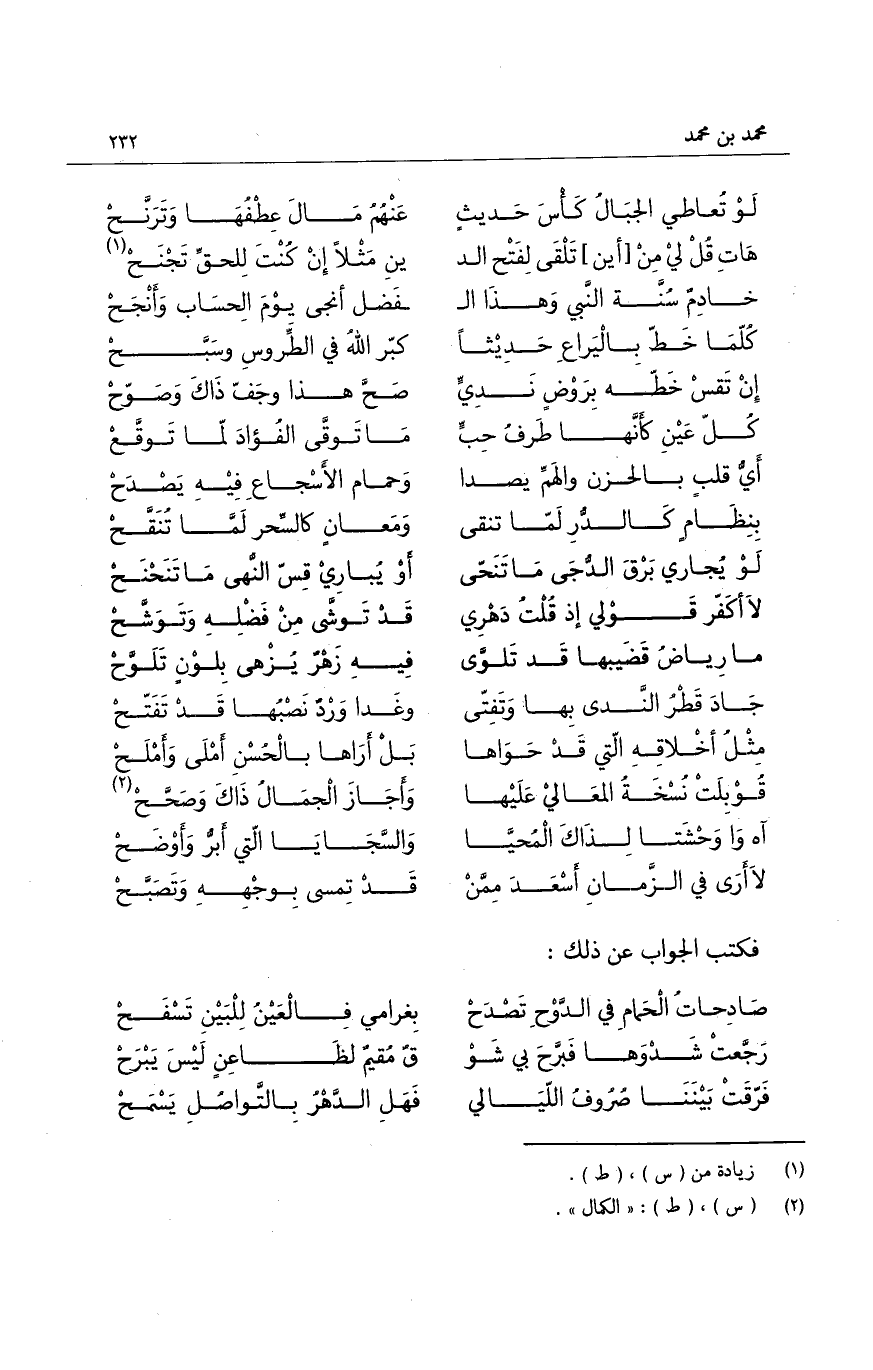 محمد بن محمد ٢٣٢
لَوْ تُعاطي الجبَالُ كَأْسَ حَديثٍ عَنْهُمُ مَالَ عِطْفُهَا وَتَرَنَّحْ
هَاتِ قُلْ ليْ مِنْ [أين] تَلْقَى لفَتْح الد ين مَثْلاً إنْ كُنْتَ للحقّ تَجْنَحْ(١)
خادمٌ سُنَّة النَّبي وَهذَا الـ ـفَضل أنجى يوْمَ الحسَاب وَأَنْجَحْ
كُلّمَا خَطّ بالْيَراعِ حَديْثاً كبّر اللهُ في الطِّروسِ وسَبَّحْ
إنْ تَقسْ خَطّه برَوْضٍ نَديٍّ صَحَّ هذا وجَفّ ذَاكَ وَصَوّحْ
كُلّ عَيْنٍ كَأَنَّهَا طَرفُ حِبٍّ مَا تَوقَّى الفُؤادَ لمّا تَوقَّعْ
أَيُّ قلبٍ بالحزن والهَمِّ يصدا وَحمام الأَسْجاعِ فيْهِ يَصْدَحْ
بنِظَامٍ كَالدُّر لمّا تنقى وَمَعانٍ كالسِّحر لَمَّا تُنَقَّحْ
لَوْ يُجاري بَرْقَ الدُّجَى مَا تَنَحّى أَوْ يُباريْ قِسّ النُّهى مَا تَنَحْنَحْ
لاَ أكَفّر قَوْلي إذ قُلْتُ دَهْري قَدْ تَوشَّى مِنْ فَضْلِهِ وَتَوَشَّحْ
ما رياضُ قَضَيبها قَد تَلوَّى فيهِ زَهْرٌ يُزْهى بلوْنٍ تَلَوَّحْ
جَادَ قَطْرُ النَّدى بها وَتَفتّى وغَدا وَرْدٌ نَصْبُها قَدْ تَفَتّحْ
مِثْلُ أخْلاقهِ الّتي قَدْ حَوَاها بَلْ أَرَاها بالْحُسْنِ أَمْلَى وَأَمْلَحْ
قُوْبلَتْ نُسْخَةُ المَعَاليْ عَلَيْها وَأَجَازَ الْجمَالُ ذَاكَ وَصَحَّحْ(٢)
آه وَا وَحْشَتا لذَاكَ الْمُحيَّا وَالسَّجَايَا الّتي أَبرُّ وَأَوْضَحْ
لاَ أَرَى في الزَّمانِ أَسْعَدَ ممَّنْ قَدْ تمسى بوجْهِهِ وَتَصَبَّحْ
فكتب الجواب عن ذلك :
صَادِحاتُ الْحَمام في الدَّوْحِ تَصْدَحْ بغرامي فالْعَيْنُ لِلْبَيْنِ تَسْفَحْ
رَجَّعتْ شَدْوَها فَبَرَّحَ بي شَوْ قٌ مُقيمٌ لظَاعنٍ لَيْسَ يَبْرَحْ
فَرّقَتْ بَيْنَنَا صُرُوفُ اللّيَالي فَهَلِ الدَّهْرُ بالتَّواصُلِ يَسْمَحْ
(١) زيادة من ( س ) ، ( ط ) .
(٢) ( س ) ، ( ط ) : « الكمال » .